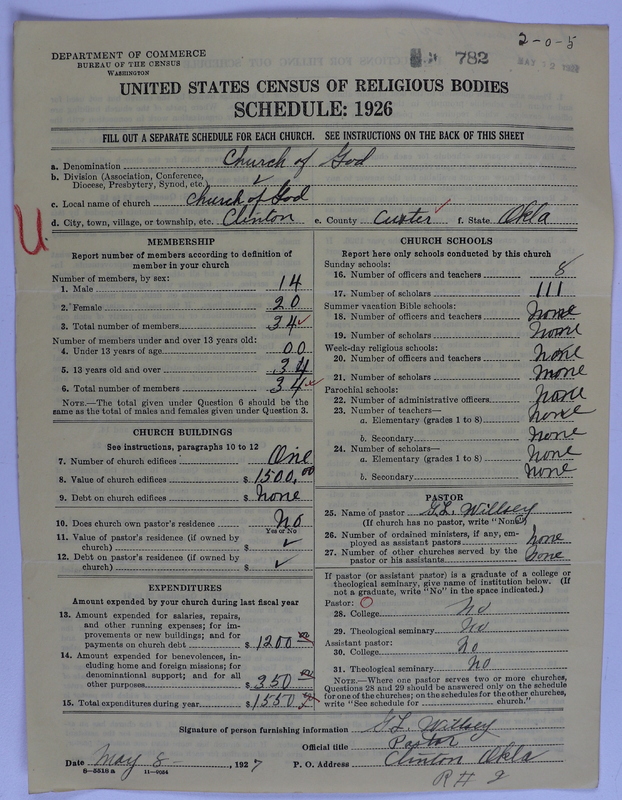 2-0-5
DEPARTMENT OF COMMERCE
BUREAU OF THE CENSUS
WASHINGTON
782
UNITED STATES CENSUS OF RELIGIOUS BODIES
SCHEDULE: 1926
FILL OUT A SEPARATE SCHEDULE FOR EACH CHURCH. SEE INSTRUCTIONS ON THE BACK OF THIS SHEET
a. Denomination Church of God
b. Division (Association, Conference,
Diocese, Presbytery, Synod, etc.) ✓
c. Local name of church Church of God
d. City, town, village, or township, etc. Clinton e. County Custer ✓ f. State Okla
U.
MEMBERSHIP
Report number of members according to definition of
member in your church
Number of members, by sex:
1. Male 14
2. Female 20
3. Total number of members 34 ✓
Number of members under and over 13 years old:
4. Under 13 years of age 00
5. 13 years old and over 34
6. Total number of members 34 ✓
NOTE.—The total given under Question 6 should be the
same as the total of males and females given under Question 3.
CHURCH BUILDINGS
See instructions, paragraphs 10 to 12
7. Number of church edifices One
8. Value of church edifices $ 1500.00
9. Debt on church edifices $ None
10. Does church own pastor's residence No
Yes or No
11. Value of pastor's residence (if owned by
church) $ ✓
12. Debt on pastor's residence (if owned by
church) $ ✓
EXPENDITURES
Amount expended by your church during last fiscal year
13. Amount expended for salaries, repairs,
and other running expenses; for im-
provements or new buildings; and for
payments on church debt $ 1200
14. Amount expended for benevolences, in-
cluding home and foreign missions; for
denominational support; and for all
other purposes $ 350
15. Total expenditures during year $ 1550
CHURCH SCHOOLS
Report here only schools conducted by this church
Sunday schools:
16. Number of officers and teachers 8
17. Number of scholars 111
Summer vacation Bible schools:
18. Number of officers and teachers None
19. Number of scholars None
Week-day religious schools:
20. Number of officers and teachers None
21. Number of scholars None
Parochial schools:
22. Number of administrative officers None
23. Number of teachers—
a. Elementary (grades 1 to 8) None
b. Secondary None
24. Number of scholars—
a. Elementary (grades 1 to 8) None
b. Secondary None
PASTOR
25. Name of pastor G.L. Willsey
(If church has no pastor, write "None")
26. Number of ordained ministers, if any, em-
ployed as assistant pastors None
27. Number of other churches served by the
pastor or his assistants None
If pastor (or assistant pastor) is a graduate of a college or
theological seminary, give name of institution below. (If
not a graduate, write "No" in the space indicated.)
Pastor:
28. College No
29. Theological seminary No
Assistant pastor:
30. College No
31. Theological seminary No
NOTE.—Where one pastor serves two or more churches,
Questions 28 and 29 should be answered only on the schedule
for one of the churches; on the schedules for the other churches,
write "See schedule for church."
Signature of person furnishing information G.L. Willsey
Official title Pastor
Date May 8, 1927 P. O. Address Clinton Okla
8-5518a 11-9054
R # 2